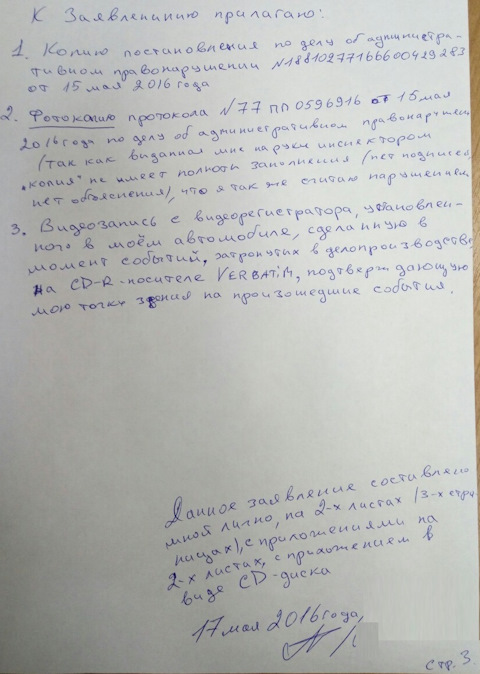 К Заявлению прилагаю:
1. Копию постановления по делу об администра-
тивном правонарушении N18810277166600429283
от 15 мая 2016 года
2. Фотокопию протокола N77 ПП 0596916 от 15 мая
2016 года по делу об административном правонарушении
(так как выданная мне на руки инспектором
"копия" не имеет полноты заполнения (нет подписей,
нет объяснения), что я так же считаю нарушением
3. Видеозапись с видеорегистратора, установлен-
ного в моём автомобиле, сделанную в
момент событий, затронутых в делопроизводстве
на CD-R-носителе VERBATIM, подтверждающую
мою точку зрения на произошедшие события.
Данное заявление составлено
мной лично, на 2-х листах (3-х стра-
ницах), с приложениями на
2-х листах, с приложением в
виде CD-диска
17 мая 2016 года,
стр. 3.